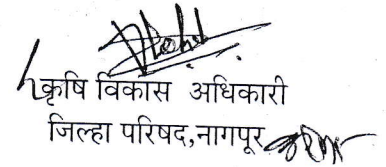 कृषि विकास अधिकारी
जिल्हा परिषद,नागपूर